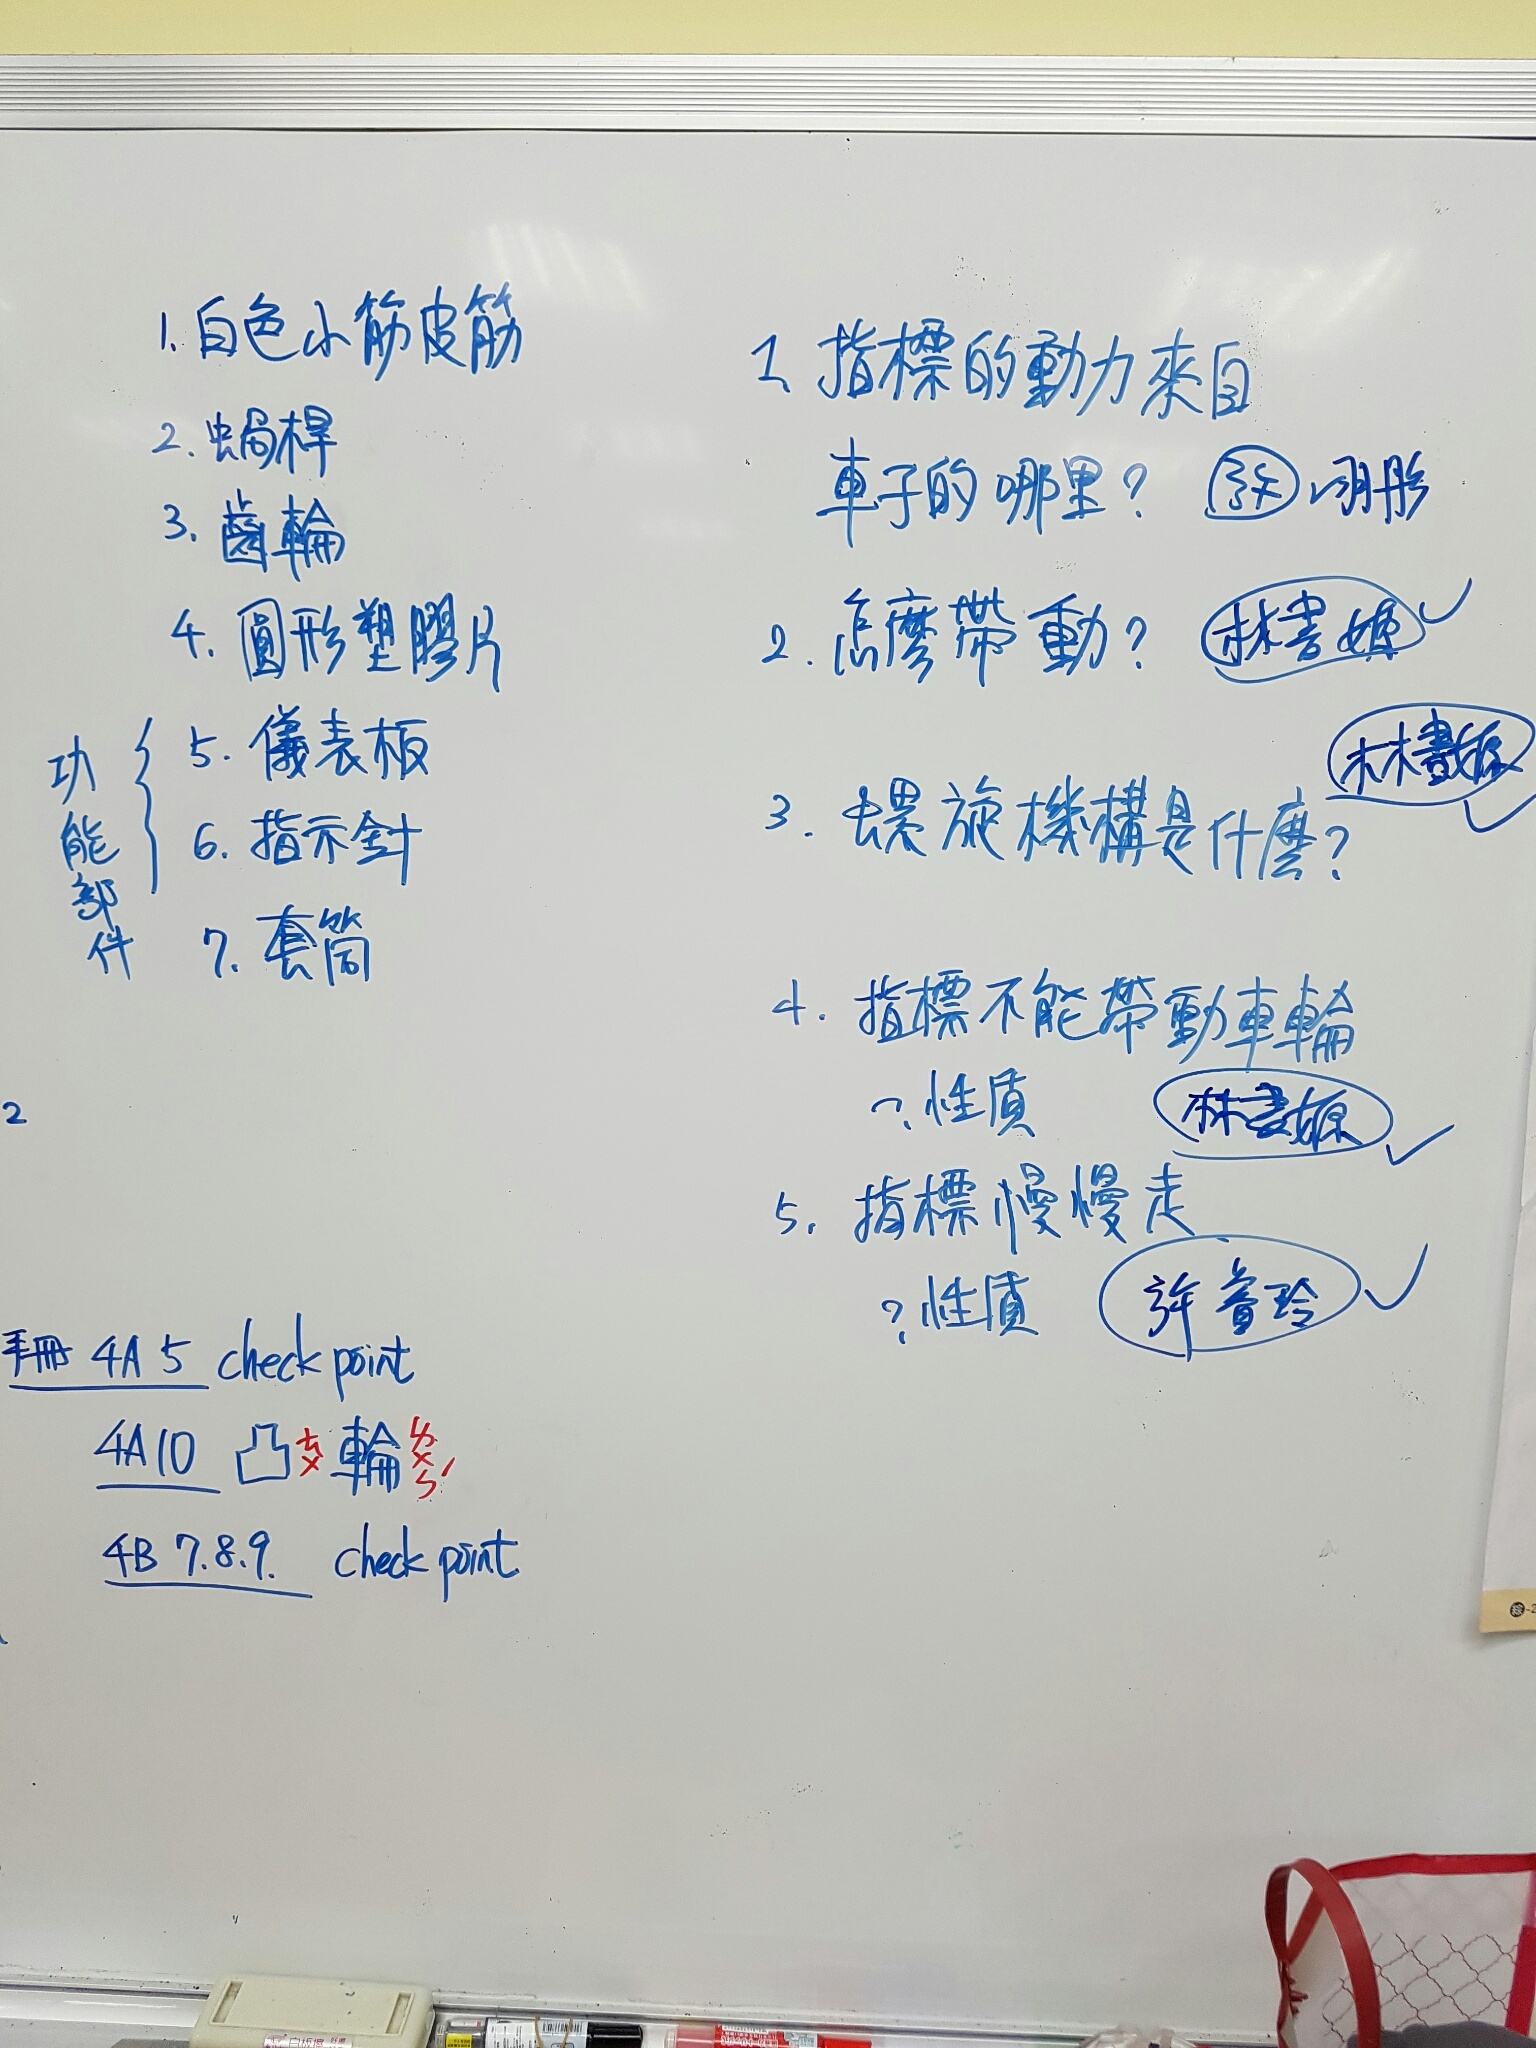 1. 白色小筋皮筋
2. 蝸桿
3. 齒輪
4. 圓形塑膠片
5. 儀表板
6. 指示針
7. 套筒
功能部件
2
手冊 4A 5 check point
4A10 凸ㄊㄨ輪ㄌㄨㄣˊ
4B 7.8.9. check point
1. 指標的動力來自
車子的哪里? 許 羽彤
2. 怎麼帶動? 林書嫄
林書嫄
3. 螺旋機構是什麼?
4. 指標不能帶動車輪
? 性質 林書嫄
5. 指標慢慢走
? 性質 許 玲
白板擦